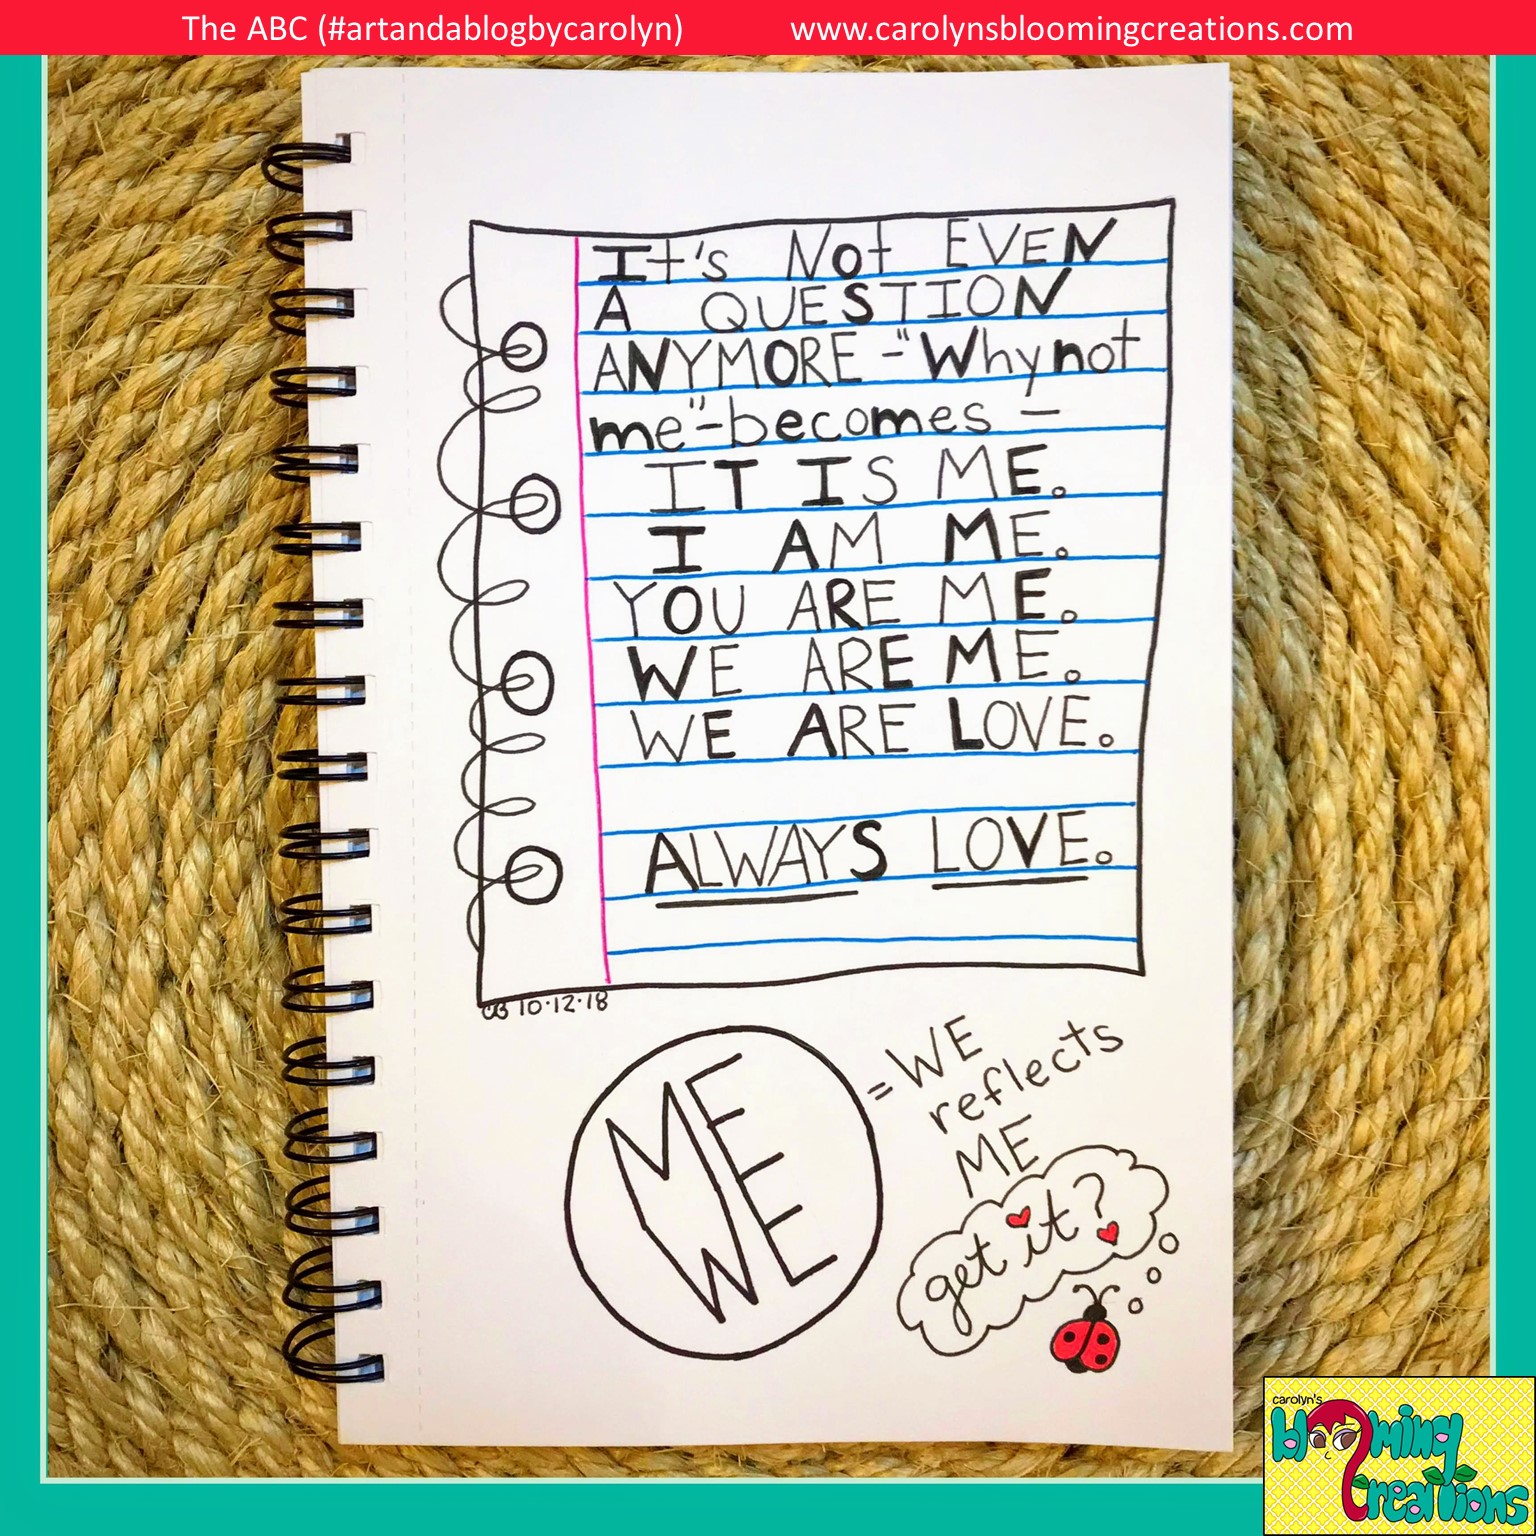 The ABC (#artandablogbycarolyn) www.carolynsbloomingcreations.com
It's Not EVEN
A QUESTION
ANYMORE -"Why not
me"- becomes -
IT IS ME.
I AM ME.
YOU ARE ME.
WE ARE ME.
WE ARE LOVE.
ALWAYS LOVE.
CB 10·12·18
ME
WE
= WE
reflects
ME
get it?
carolyn's
blooming
Creations